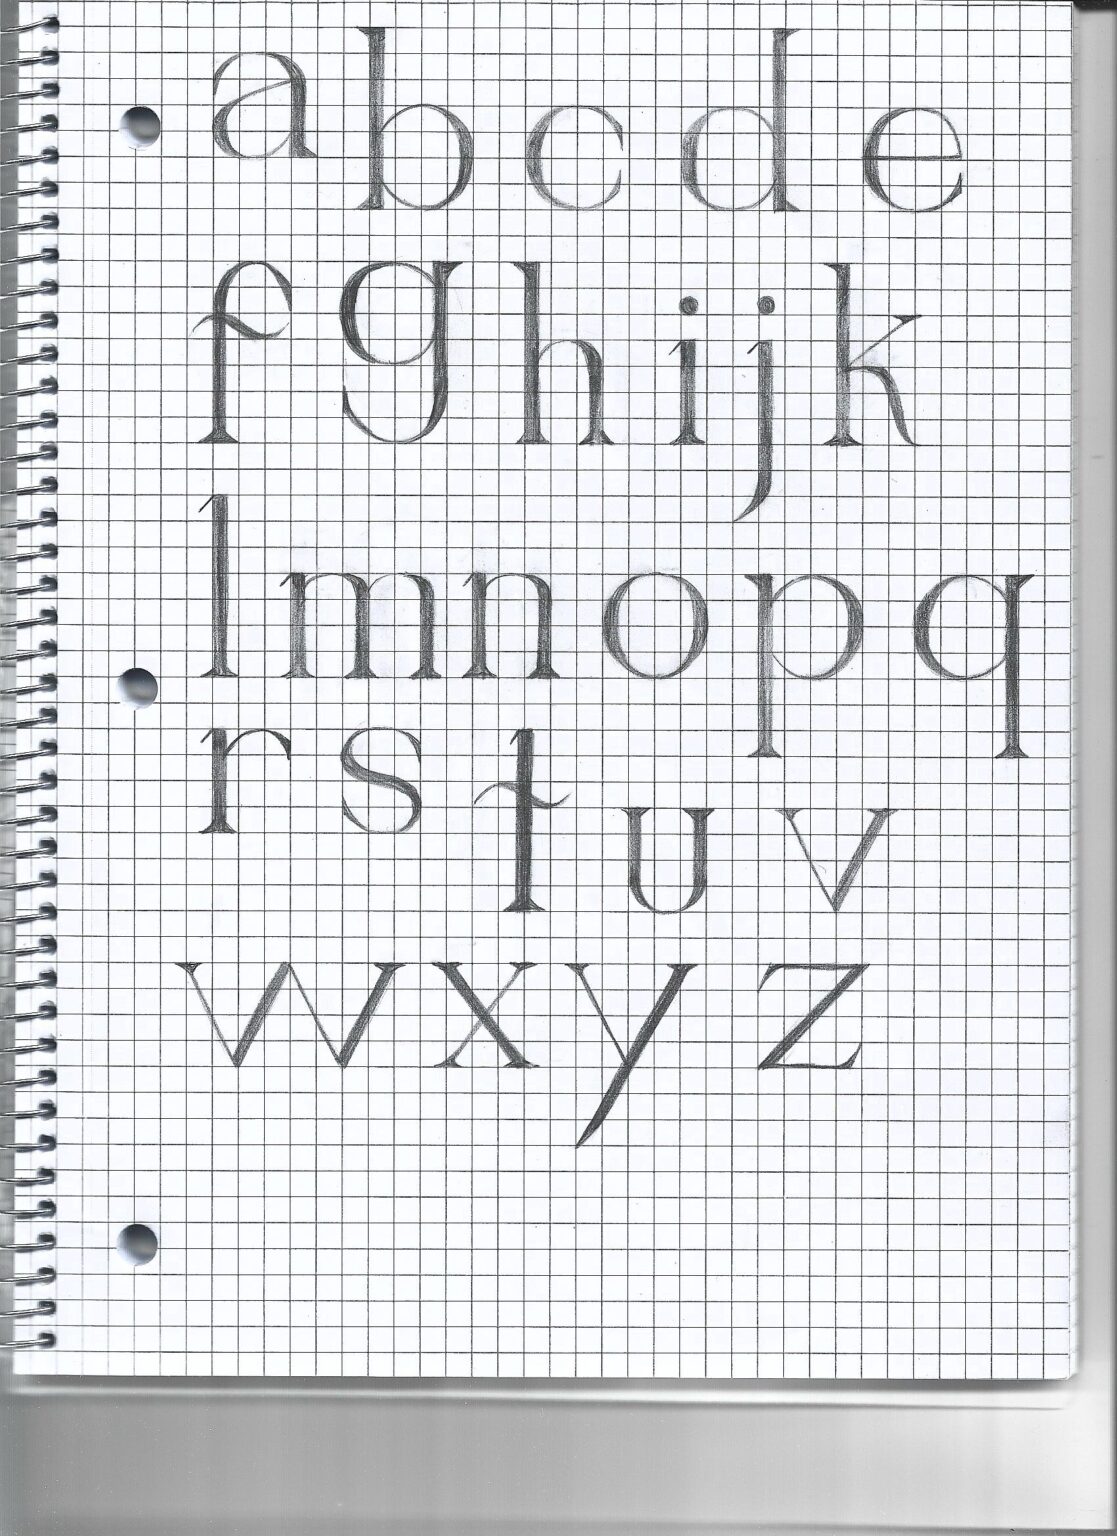 a b c d e
f g h i j k
l m n o p q
r s t u v
w x y z